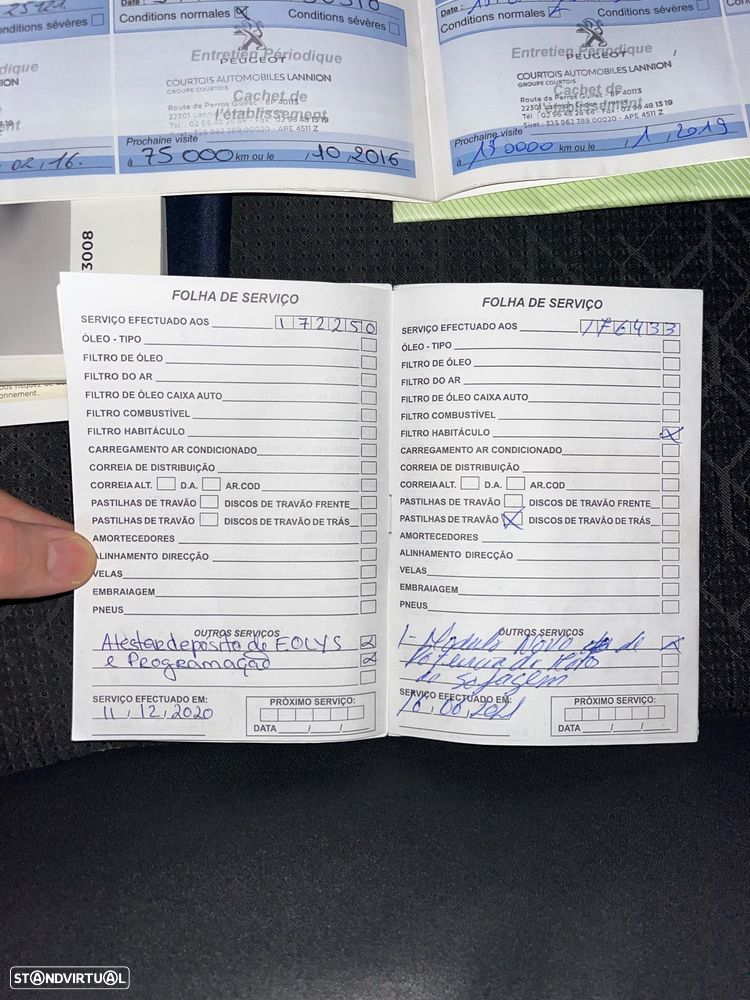 25121
Conditions sévères
dique
ION
ent
02,16.
Date :
Conditions normales
Conditions sévères
Entretien Périodique
PEUGEOT
COURTOIS AUTOMOBILES LANNION
GROUPE COURTOIS
Cachet de
l'établissement
Route de Perros Guirec - BP 40113
Prochaine visite
à 75 000 km ou le , 10, 2016
Date :
Conditions normales
Conditions sévères
Entretien Périodique
PEUGEOT
COURTOIS AUTOMOBILES LANNION
GROUPE COURTOIS
Cachet de
l'établissement
Route de Perros Guirec - BP 40113
Siret : 325 962 389 00020 - APE 4511 Z
Prochaine visite
à 130000 km ou le , 1, 2019
3008
onnement.
FOLHA DE SERVIÇO
SERVIÇO EFECTUADO AOS 172250
ÓLEO - TIPO
FILTRO DE ÓLEO
FILTRO DO AR
FILTRO DE ÓLEO CAIXA AUTO
FILTRO COMBUSTÍVEL
FILTRO HABITÁCULO
CARREGAMENTO AR CONDICIONADO
CORREIA DE DISTRIBUIÇÃO
CORREIA ALT. D.A. AR.COD
PASTILHAS DE TRAVÃO DISCOS DE TRAVÃO FRENTE
PASTILHAS DE TRAVÃO DISCOS DE TRAVÃO DE TRÁS
AMORTECEDORES
ALINHAMENTO DIRECÇÃO
VELAS
EMBRAIAGEM
PNEUS
OUTROS SERVIÇOS
Atestar deposito de EOLYS
e Programação
SERVIÇO EFECTUADO EM:
11, 12, 2020
PRÓXIMO SERVIÇO:
DATA / /
FOLHA DE SERVIÇO
SERVIÇO EFECTUADO AOS 176433
ÓLEO - TIPO
FILTRO DE ÓLEO
FILTRO DO AR
FILTRO DE ÓLEO CAIXA AUTO
FILTRO COMBUSTÍVEL
FILTRO HABITÁCULO
CARREGAMENTO AR CONDICIONADO
CORREIA DE DISTRIBUIÇÃO
CORREIA ALT. D.A. AR.COD
PASTILHAS DE TRAVÃO DISCOS DE TRAVÃO FRENTE
PASTILHAS DE TRAVÃO DISCOS DE TRAVÃO DE TRÁS
AMORTECEDORES
ALINHAMENTO DIRECÇÃO
VELAS
EMBRAIAGEM
PNEUS
OUTROS SERVIÇOS
1 - Modulo Novo de
Potencia do Moto
de Sofagem
SERVIÇO EFECTUADO EM:
16, 06, 2021
PRÓXIMO SERVIÇO:
DATA / /
STANDVIRTUAL